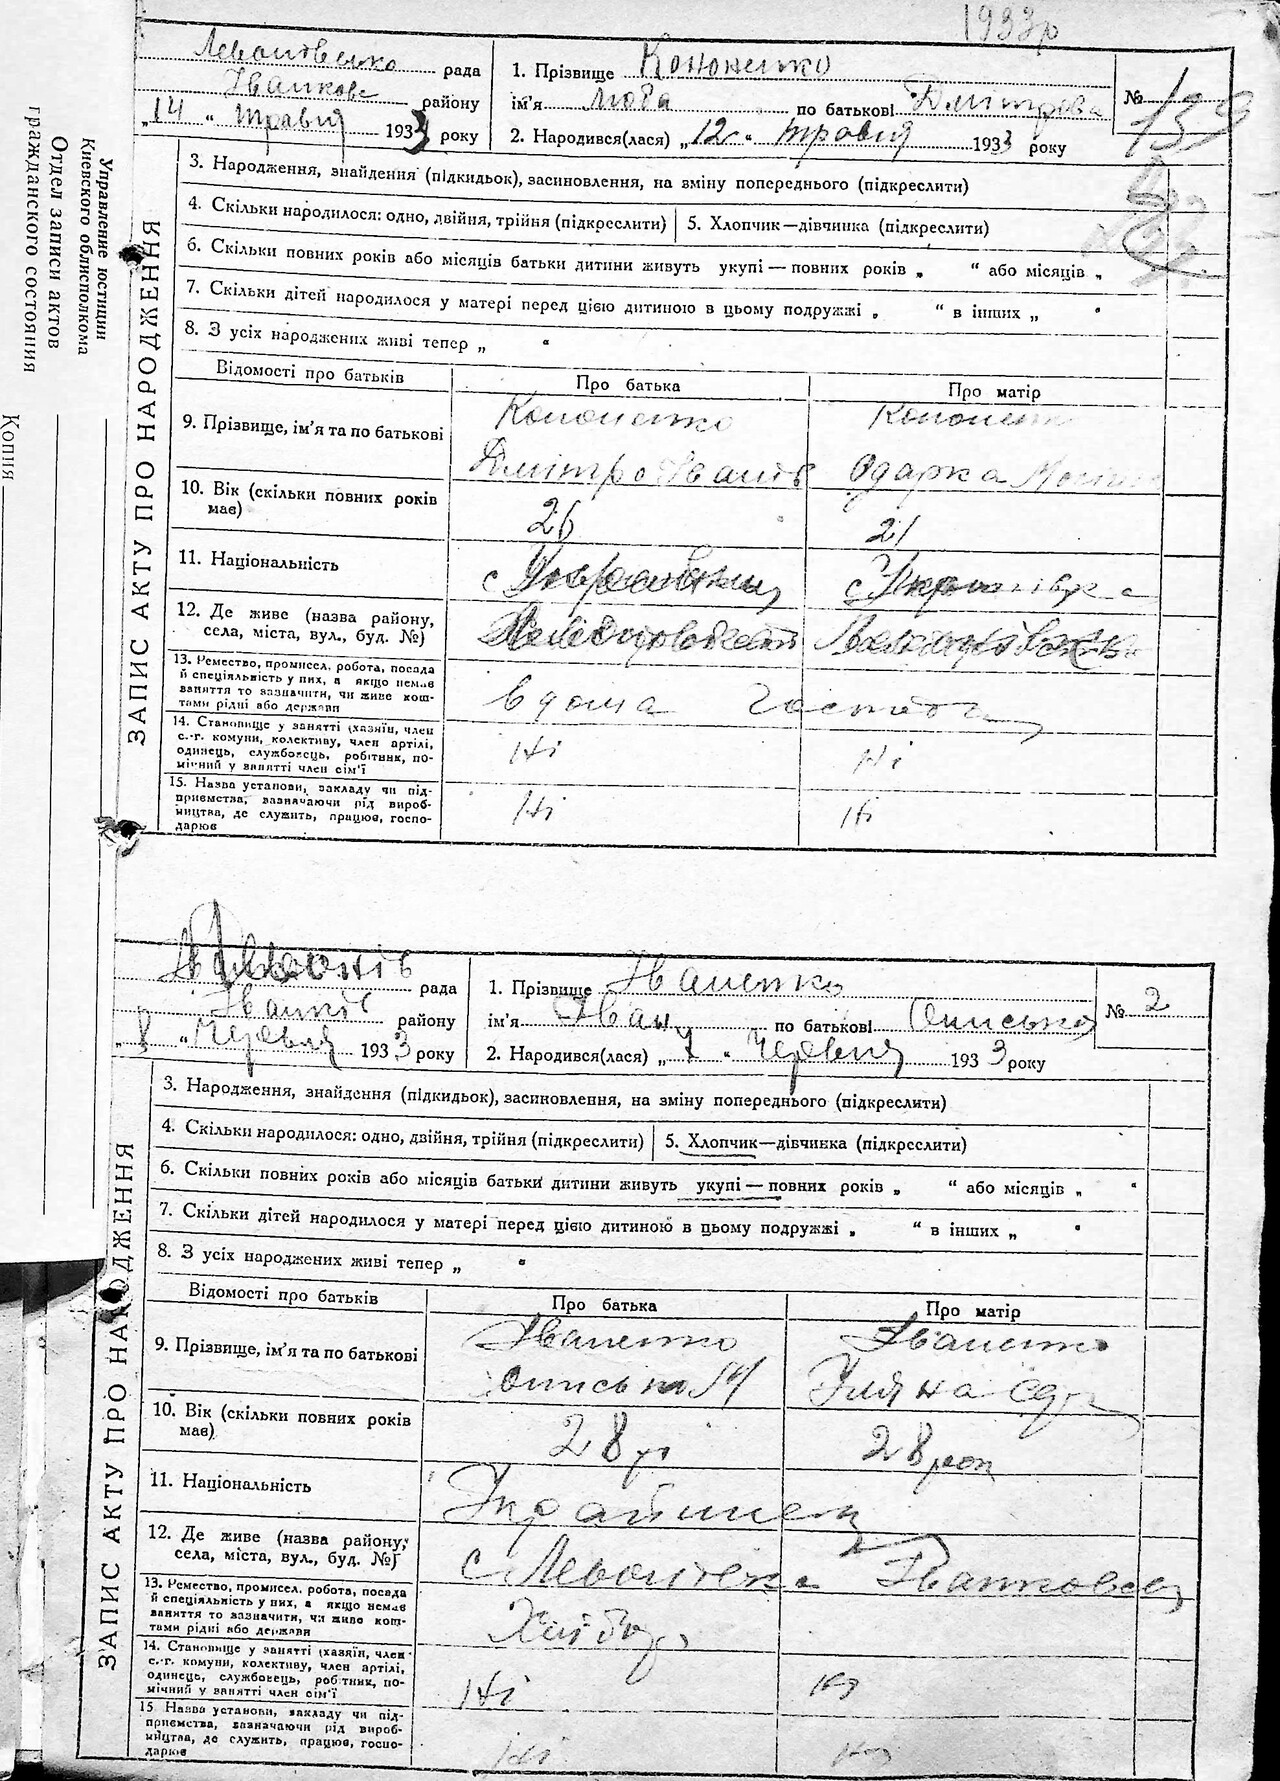 1933р
Леонівсько рада
Іванков району
„14 “ травня 1933 року
1. Прізвище Кононенко
ім'я Люба по батькові Дмітрова
2. Народився(лася) „12 “ травня 1933 року
№ 139
ЗАПИС АКТУ ПРО НАРОДЖЕННЯ
3. Народження, знайдення (підкидьок), засиновлення, на зміну попереднього (підкреслити)
4. Скільки народилося: одно, двійня, трійня (підкреслити) 5. Хлопчик—дівчинка (підкреслити)
6. Скільки повних років або місяців батьки дитини живуть укупі — повних років „ “ або місяців „
7. Скільки дітей народилося у матері перед цією дитиною в цьому подружжі „ “ в інших „ “
8. З усіх народжених живі тепер „ “
Відомості про батьків Про батька Про матір
9. Прізвище, ім'я та по батькові
Кононенко Кононенк
Дмітро Іванів Одарка
10. Вік (скільки повних років має)
26 21
11. Національність
12. Де живе (назва району, села, міста, вул., буд. №)
13. Ремество, промисел, робота, посада
й спеціяльність у них, а якщо немає
заняття то зазначити, чи живе кош-
тами рідні або держави
вдома
14. Становище у занятті (хазяїн, член
с.-г. комуни, колективу, член артілі,
одинець, службовець, робітник, по-
мічний у занятті член сім'ї
Ні Ні
15. Назва установи, закладу чи під-
приємства, зазначаючи рід вироб-
ництва, де служить, працює, госпо-
дарює
Ні Ні
Управление юстиции
Киевского облисполкома
Отдел записи актов
гражданского состояния
Копия
рада
Іванків району
„8 “ Червня 1933 року
1. Прізвище Іваненко
ім'я Іван по батькові Ониськов
2. Народився(лася) „7 “ Червня 1933 року
№ 2
ЗАПИС АКТУ ПРО НАРОДЖЕННЯ
3. Народження, знайдення (підкидьок), засиновлення, на зміну попереднього (підкреслити)
4. Скільки народилося: одно, двійня, трійня (підкреслити) 5. Хлопчик—дівчинка (підкреслити)
6. Скільки повних років або місяців батьки дитини живуть укупі — повних років „ “ або місяців „ “
7. Скільки дітей народилося у матері перед цією дитиною в цьому подружжі „ “ в інших „ “
8. З усіх народжених живі тепер „ “
Відомості про батьків Про батька Про матір
9. Прізвище, ім'я та по батькові
Іваненко Іваненко
Онисько Уляна
10. Вік (скільки повних років має)
28 28 рок
11. Національність
Українец
12. Де живе (назва району, села, міста, вул., буд. №)
с Леонівка Іванковск
13. Ремество, промисел, робота, посада
й спеціяльність у них, а якщо немає
заняття то зазначити, чи живе кош-
тами рідні або держави
Хлібор
14. Становище у занятті (хазяїн, член
с.-г. комуни, колективу, член артілі,
одинець, службовець, робітник, по-
мічний у занятті член сім'ї
Ні Ні
15. Назва установи, закладу чи під-
приємства, зазначаючи рід вироб-
ництва, де служить, працює, госпо-
дарює
Ні Ні